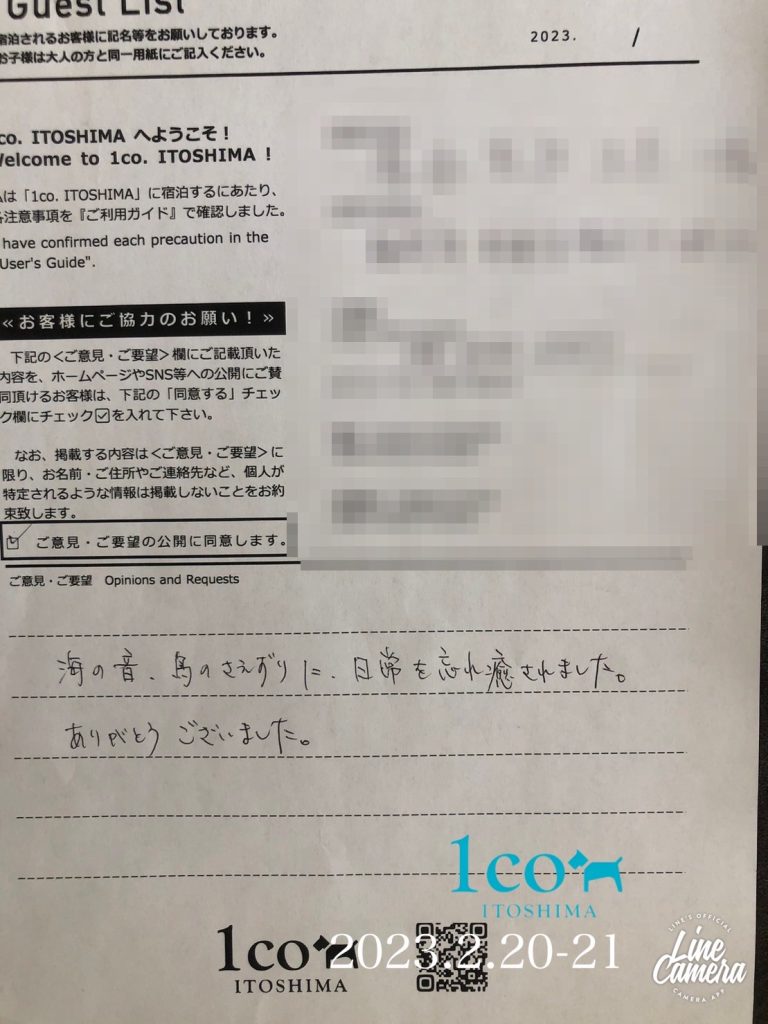 Guest List
宿泊されるお客様に記名等をお願いしております。
お子様は大人の方と同一用紙にご記入ください。
2023. /
co. ITOSHIMA へようこそ！
Welcome to 1co. ITOSHIMA !
は「1co. ITOSHIMA」に宿泊するにあたり、
各注意事項を『ご利用ガイド』で確認しました。
have confirmed each precaution in the
User's Guide".
≪お客様にご協力のお願い！≫
下記の＜ご意見・ご要望＞欄にご記載頂いた
内容を、ホームページやSNS等への公開にご賛
同頂けるお客様は、下記の「同意する」チェッ
ク欄にチェック☑を入れて下さい。
なお、掲載する内容は＜ご意見・ご要望＞に
限り、お名前・ご住所やご連絡先など、個人が
特定されるような情報は掲載しないことをお約
束致します。
☑ ご意見・ご要望の公開に同意します。
ご意見・ご要望 Opinions and Requests
海の音、鳥のさえずりに、日常を忘れ癒されました。
ありがとうございました。
1co
ITOSHIMA
1co
ITOSHIMA
2023.2.20-21
LINE'S OFFICIAL
Line Camera
CAMERA APP